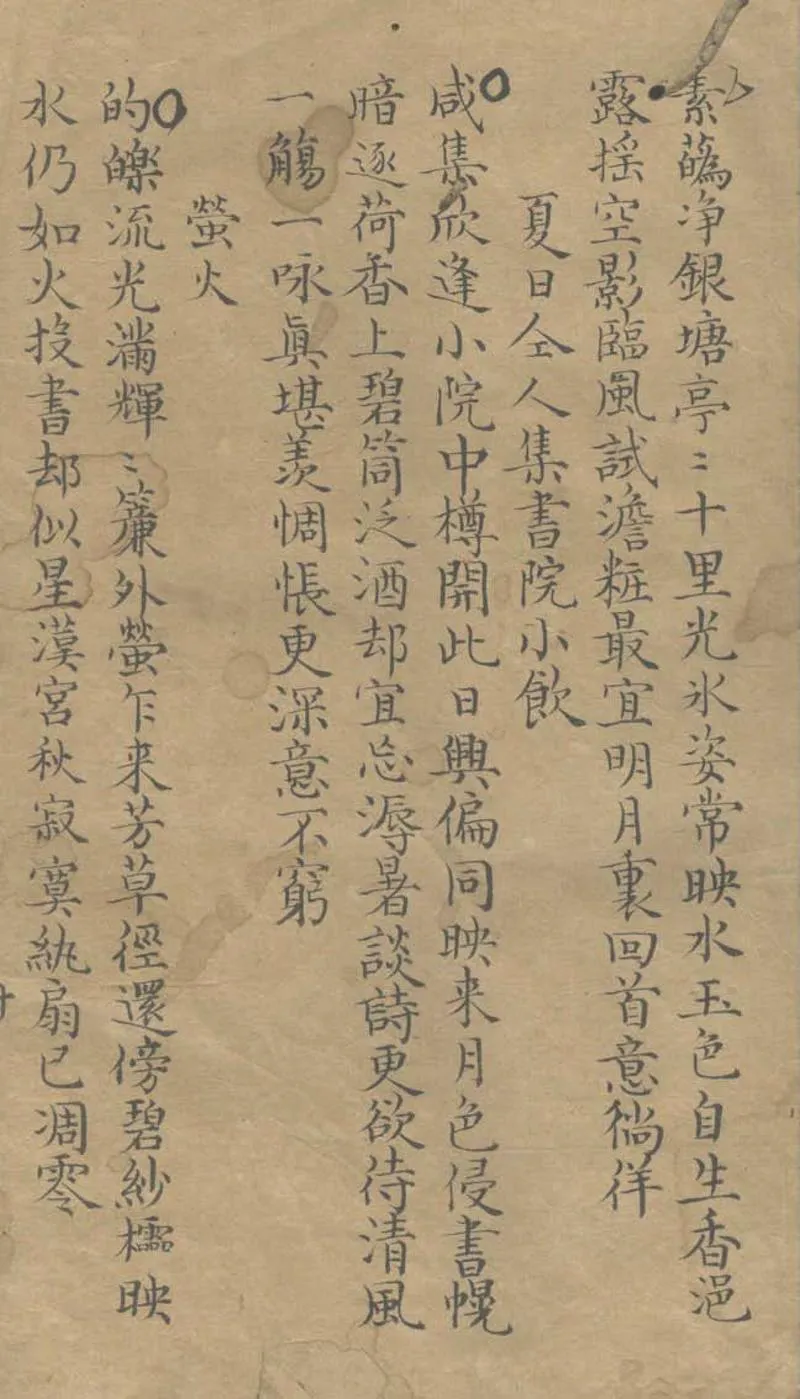 素蕅净銀塘亭〻十里光氷姿常映水玉色自生香浥
露揺空影臨風試澹粧最宜明月裏回首意徜徉
夏日仝人集書院小飲
咸集欣逢小院中樽開此日興偏同映来月色侵書幌
暗逐荷香上碧筒泛酒却宜忘溽暑談詩更欲待清風
一觴一咏眞堪羡惆悵更深意不窮
螢火
的皪流光滿輝〻簾外螢乍来芳草徑還傍碧紗櫺映
水仍如火投書却似星漢宮秋寂寞紈扇已凋零